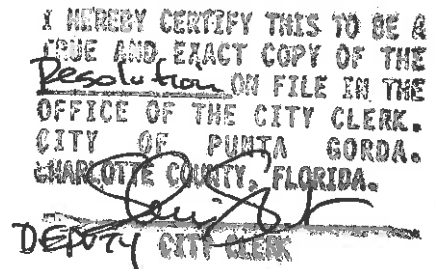 I HEREBY CERTIFY THIS TO BE A
TRUE AND EXACT COPY OF THE
Resolution ON FILE IN THE
OFFICE OF THE CITY CLERK.
CITY OF PUNTA GORDA.
CHARLOTTE COUNTY, FLORIDA.
DEPUTY CITY CLERK